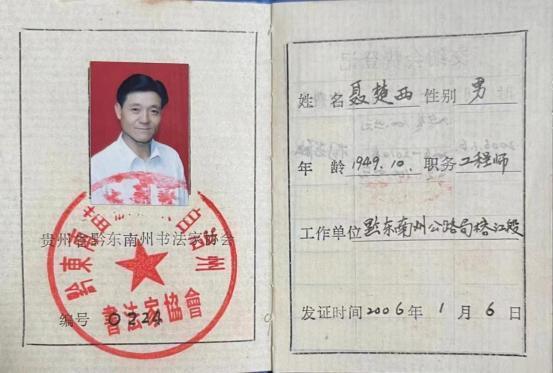 贵州省黔东南州书法家协会
黔東南苗 自治州
書法家協會
编号 0224
姓名 聂楚西 性别 男
年龄 1949.10. 职务 工程师
工作单位 黔东南州公路局榕江段
发证时间 2006年1月6日